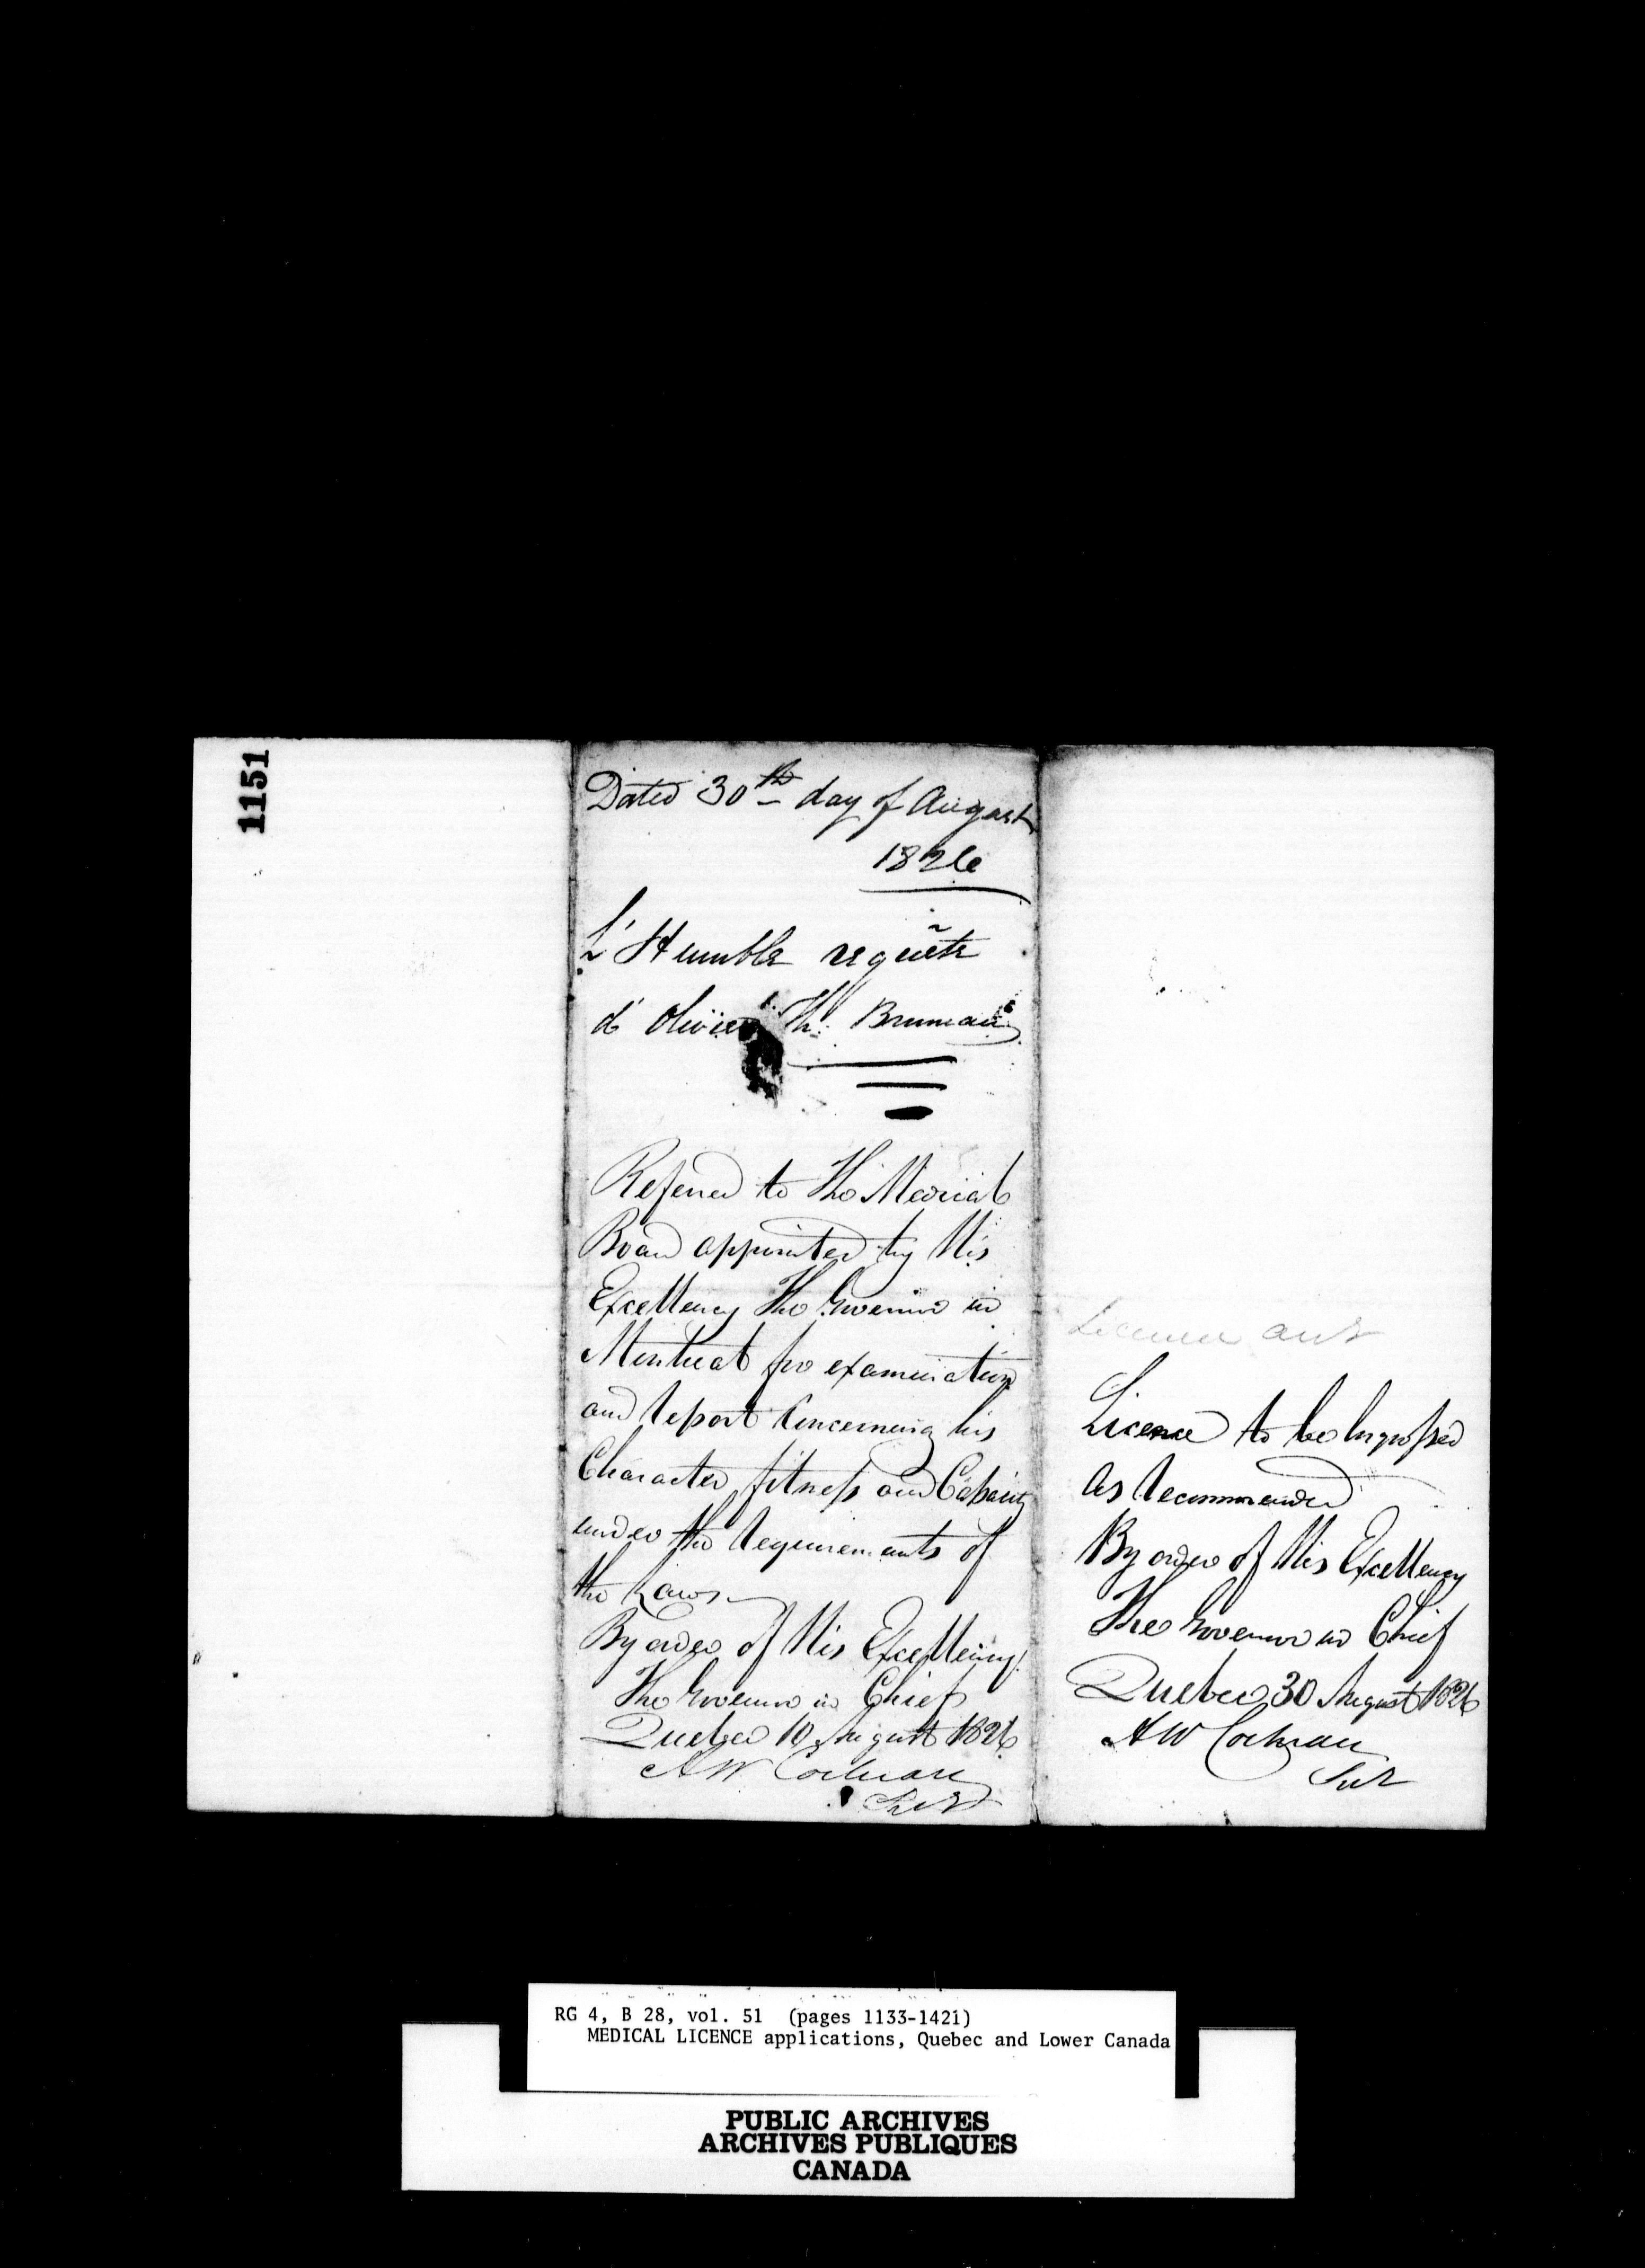 1151
Dated 30th day of August
1826
L'Humble requête
d'Olivier Th: Bruneau
Referred to The Medical
Board appointed by His
Excellency The Governor in
Montreal for examination
and report Concerning his
Character, fitness and Capacity
under the requirements of
the Laws
By order of His Excellency
The Governor in Chief
Quebec 10 August 1826
A W Cochran
Secy
Licence
Licence to be Ingrossed
as recommended
By order of His Excellency
The Governor in Chief
Quebec 30 August 1826
A W Cochran
Secy
RG 4, B 28, vol. 51 (pages 1133-1421)
MEDICAL LICENCE applications, Quebec and Lower Canada
PUBLIC ARCHIVES
ARCHIVES PUBLIQUES
CANADA